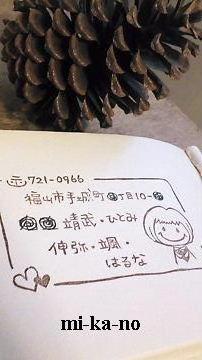 〒721-0966
福山市手城町 丁目10-
靖武・ひとみ
伸弥・颯・
はるな
mi-ka-no